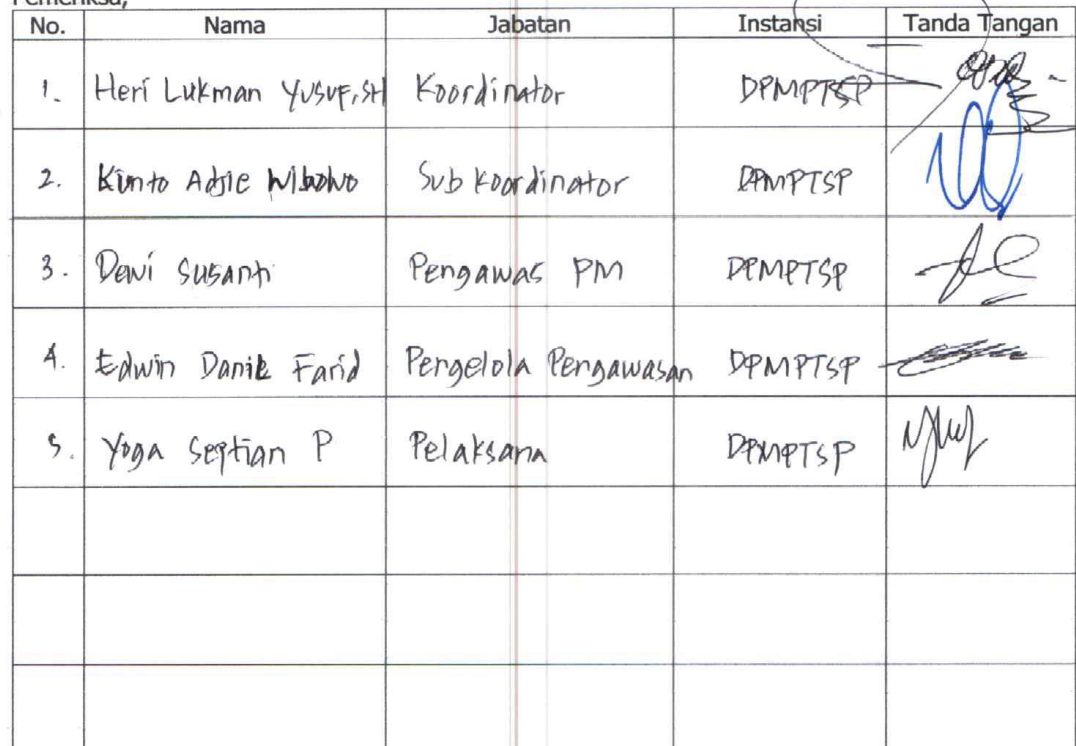 Pemeriksa,
No. Nama Jabatan Instansi Tanda Tangan
1. Heri Lukman Yusuf, SH Koordinator DPMPTSP
2. Kunto Adjie Wibowo Sub Koordinator DPMPTSP
3. Dewi Susanti Pengawas PM DPMPTSP
4. Edwin Danie Farid Pengelola Pengawasan DPMPTSP
5. Yoga Septian P Pelaksana DPMPTSP